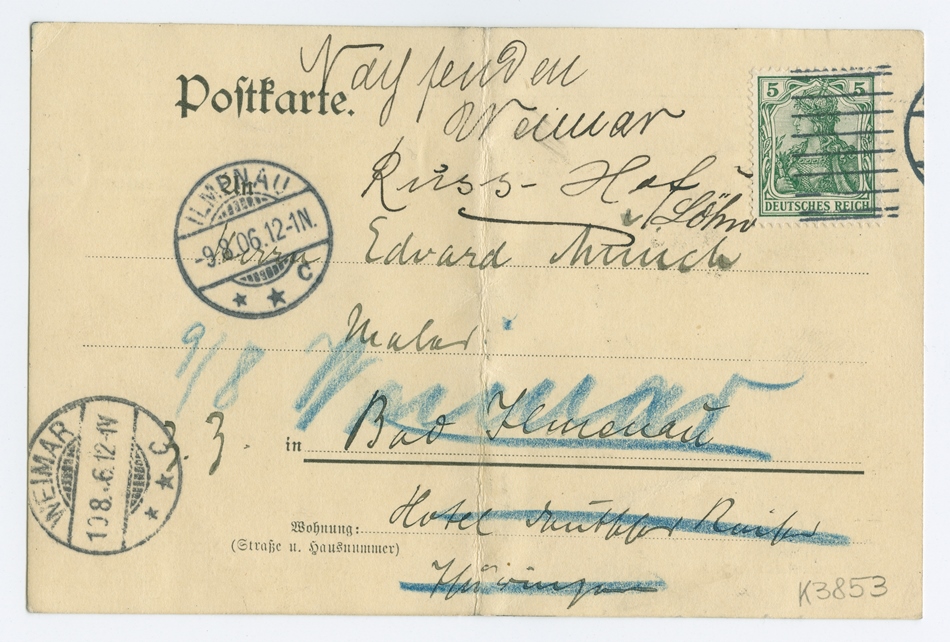 Nachsenden
Postkarte.
Weimar
Russ- Hof
5 5
DEUTSCHES REICH
An
ILMENAU
-9.8.06.12-1N.
C
Herrn Edvard Munch
Maler
9/8 Weimar
in Bad Ilmenau
WEIMAR
10.8.06.12-1V
C
Wohnung: Hotel deutscher Kaiser
(Straße u. Hausnummer)
Thüringen
K3853